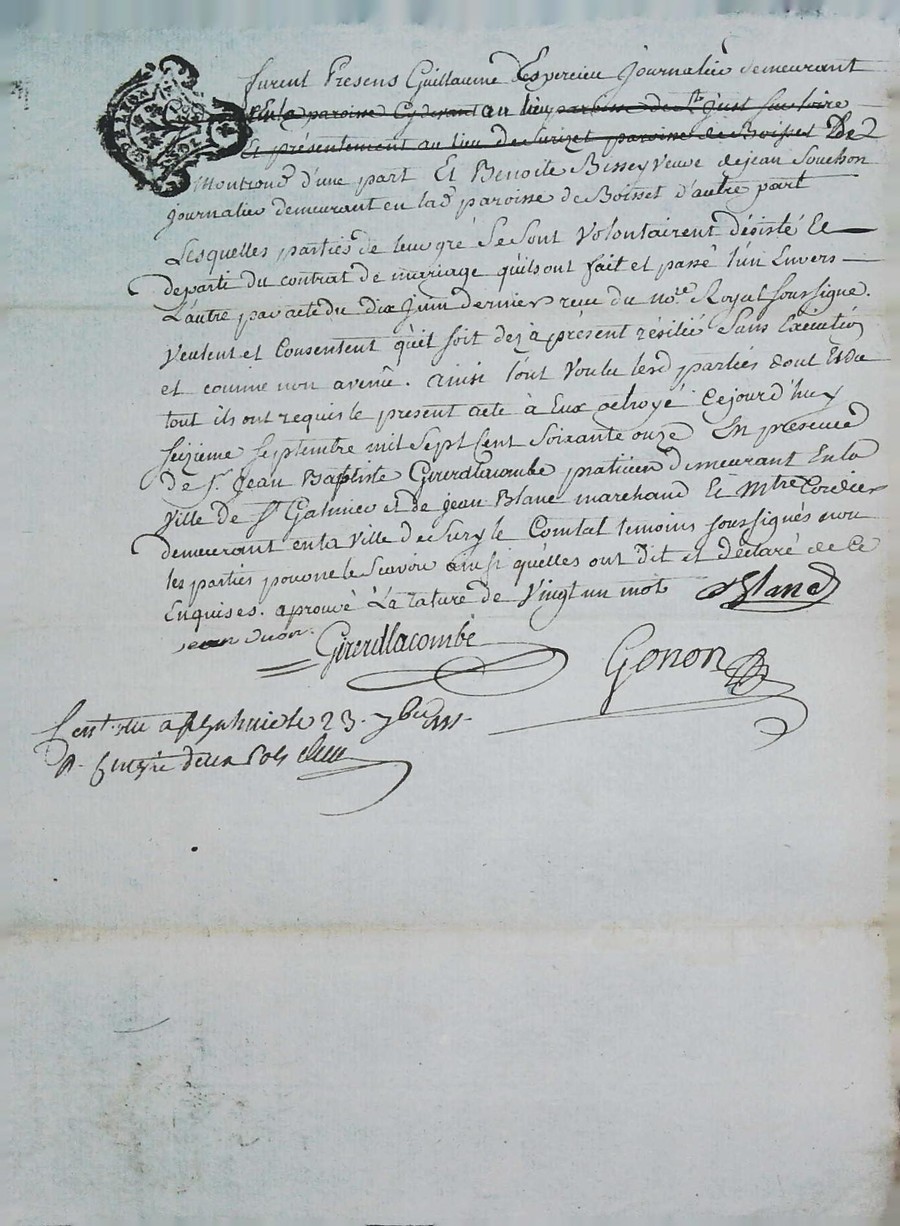 furent Presens Guillaume Espercieu Journalier demeurant
En la paroisse Cydevant au lieu paroisse de St Just sur loire
Et présentement au lieu de Surizet paroisse de Boisset De
Montrond d'une part Et Benoite Bissey veuve de jean Souchon
journalier demeurant en lad paroisse de Boisset d'autre part
Lesquelles parties de leur gré Se Sont Volontairent désisté Et
departi du contrat de mariage quils ont fait et passé l'un Envers
L'autre par acte du dix Juin dernier receu du nore Royal soussigné.
Veulent et Consentent qu'il soit dez a présent résilié Sans Execution
et comme non avenü. ainsi l'ont Voulu lesd parties dont Et du
tout ils ont requis le present acte à Eux octroyé Cejourd'huy
seizieme septembre mil Sept Cent Soixante onze En presence
de Sr Jean Baptiste Girerdlacombe praticien demeurant En la
ville de St Galmier et de jean Blanc marchand Et Mtre Cordier
demeurant en la ville de Sury le Comtal temoins soussignés non
les parties pour ne le Scavoir ainsi qu'elles ont dit et déclaré de Ce
Enquises. aprouvé La rature de Vingt un mots Blanc
Girerdlacombe
Gonon
23 7bre
deux sols